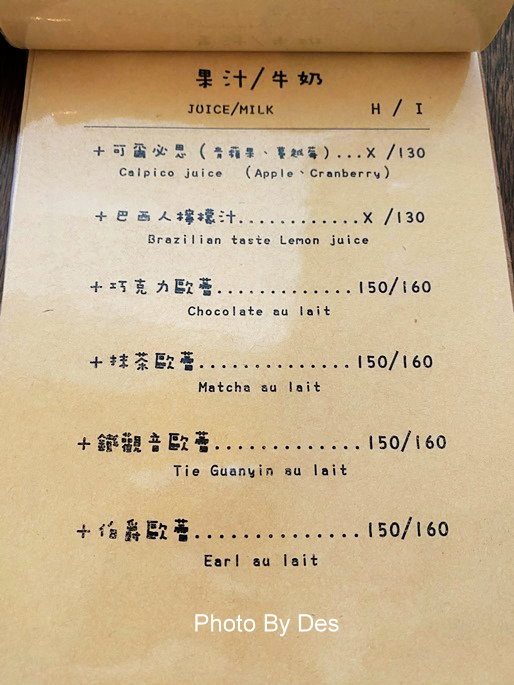 果汁/牛奶
JUICE/MILK H / I
+可爾必思(青蘋果、蔓越莓)...X /130
Calpico juice (Apple、Cranberry)
+巴西人檸檬汁............X /130
Brazilian taste Lemon juice
+巧克力歐蕾.............150/160
Chocolate au lait
+抹茶歐蕾..............150/160
Matcha au lait
+鐵觀音歐蕾.............150/160
Tie Guanyin au lait
+伯爵歐蕾...............150/160
Earl au lait
Photo By Des